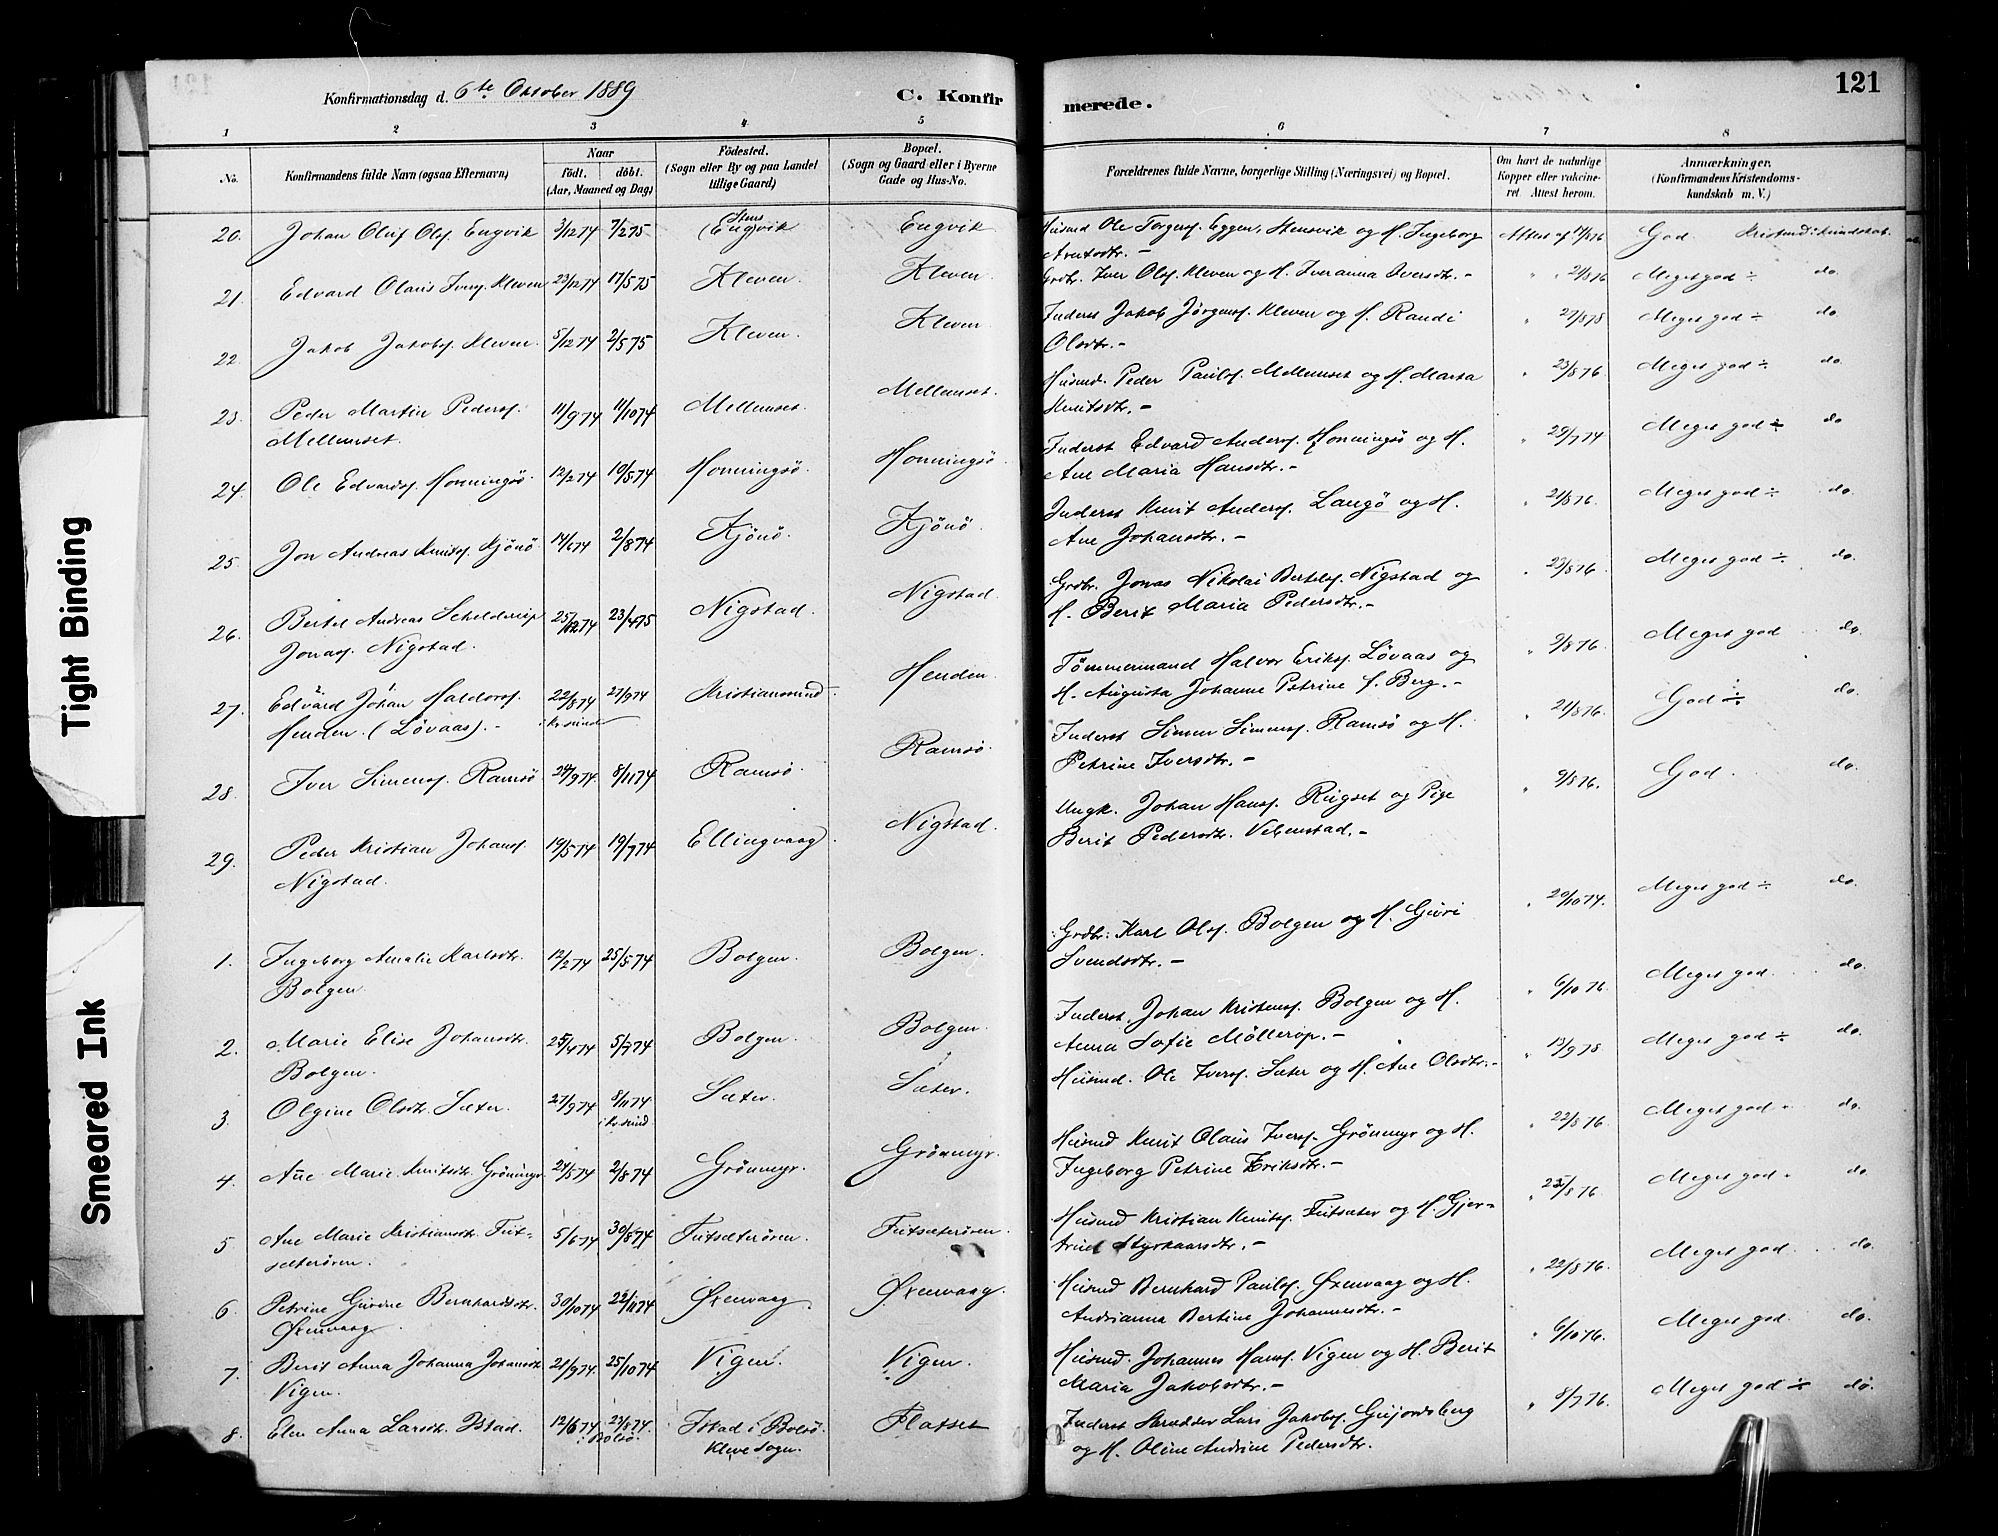 121
Konfirmationsdag d. 6te Oktober 1889
C. Konfirmerede.
1 2 3 4 5 6 7 8
No.
Konfirmandens fulde Navn (ogsaa Efternavn)
Naar
födt. döbt.
(Aar, Maaned og Dag)
Födested.
(Sogn eller By og paa Landet tillige Gaard)
Bopæl.
(Sogn og Gaard eller i Byerne Gade og Hus-No.
Forældrenes fulde Navne, borgerlige Stilling (Næringsvei) og Bopæl.
Om havt de naturlige Kopper eller vakcineret. Attest herom.
Anmærkninger.
(Konfirmandens Kristendomskundskab m. V.)
20. Johan Oluf Ols. Engvik 3/12 74 7/2 75 (Stens Engvik Engvik Husmd Ole Torgers. Eggen, Stensvik og H. Ingeborg Arntsdtr. - Attest af 17/8 76 God Kristend: Kundskab.
21. Edvard Olaus Ivers. Kleven 23/12 74 17/5 75 Kleven. Kleven. Grdbr. Iver Ols. Kleven og H. Iveranna Iversdtr. - " " 21/8 76 Meget god ÷ do
22 Jakob Jakobs. Kleven. 5/12 74 2/5 75 Kleven. Kleven. Inderst Jakob Jörgens. Kleven og H. Randi Olsdtr. - " 27/8 78 Meget god ÷ do
23. Peder Martin Peders. Mellemset. 11/9 74 11/10 74 Mellemset. Mellemset. Husmd. Peder Pauls. Mellemset og H. Marta Knutsdtr. - " 23/8 76 Meget god ÷ do.
24. Ole Edvards. Honningsö 12/2 74 10/5 74 Honningsö. Honningsö. Inderst Edvard Anders. Honningsö og H. Ane Maria Hansdtr. - " 29/7 74 Meget god ÷ do
25. Jon Andreas Knuts. Kjönö. 14/6 74 2/8 74 Kjönö. Kjönö. Inderst Knut Anders. Langö og H. Ane Johansdtr. - " 21/8 76. Meget god ÷ do.
26. Bertel Andreas Schelderup Jonass. Nigstad. 25/12 74 23/4 75 Nigstad. Nigstad. Grdbr. Jonas Nikolai Bertels. Nigstad og H. Berit Maria Pedersdtr. - " 23/8 76 Meget god ÷ do.
27. Edvard Johan Haldors. Henden. (Lövaas). - 22/8 74 i Kr.sund 27/9 74 Kristianssund Henden. Tömmermand Halvor Eriks. Lövaas og H. Augusta Johanne Petrine f. Berg. - " 9/8 76 Meget god do.
28. Iver Simens. Ramsö 24/9 74. 8/11 74 Ramsö. Ramsö. Inderst Simen Simens. Ramsö og H. Petrine Iversdtr. - " 21/8 76. God ÷ do.
29. Peder Kristian Johans. Nigstad. 19/5 74 19/7 74 Ellingvaag Nigstad. Ungk. Johan Hans. Rugset og Pige Berit Pedersdtr. Vebenstad. - " 9/8 76. God. do.
1. Ingeborg Amalie Karlsdtr. Bolgen. 12/2 74 25/5 74 Bolgen. Bolgen. Grdbr: Karl Ols. Bolgen og H. Guri Svendsdtr. - " 20/10 74. Meget god ÷ do.
2. Marie Elise Johansdtr. Bolgen. 25/4 74 5/7 74 Bolgen. Bolgen. Inderst. Johan Kristens. Bolgen og H. Anna Sofie Möllerop. - " 6/10 76. Meget god. do.
3. Olgine Olsdtr. Sæter. 27/9 74 8/11 74 i Kr.sund. Sæter. Sæter. Husmd. Ole Ivers. Sæter og H. Ane Olsdtr. - " 13/9 78 Meget god ÷ do
4. Ane Marie Knutsdtr. Grönmyr. 24/5 74 2/8 74 Grönmyr. Grönmyr. Husmd Knut Olaus Ivers. Grönmyr og H. Ingeborg Petrine Eriksdtr. - " 22/8 76 Meget god " do.
5 Ane Marie Kristiansdtr. Futsæterören. 5/6 74 30/8 74 Futsæterören. Futsæterören. Husmd Kristian Knuts. Futsæter og H. Gjertrud Styrkaarsdtr. - " 23/8 76 Meget god " do
6. Petrine Gurine Bernhardsdtr. Øxenvaag. 30/10 74 22/11 74 Øxenvaag. Øxenvaag. Husmd Bernhard Pauls. Øxenvaag og H. Andrianna Bertine Johannesdtr. - " 22/8 76. Meget god. do.
7. Berit Anna Johanna Johansdtr Vigen. 21/9 74 25/10 74 Vigen. Vigen. Husmd. Johannes Hans. Vigen og H. Berit Maria Jakobsdtr. - " 6/10 76. Meget god. do.
8. Elen Anna Larsdtr. Istad. 12/6 74 23/8 74. i Bolsö Istad i Bolsö Kleve Sogn. Flatset Inderst Skrædder Lars Jakobs. Gujordsberg og H. Oline Andrine Pedersdtr. " 8/7 76. Meget god ÷ do.
Tight Binding
Smeared Ink